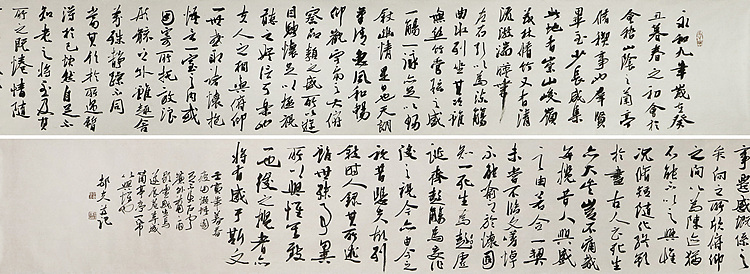 永和九年歲在癸
丑暮春之初會於
會稽山陰之蘭亭
脩禊事也羣賢
畢至少長咸集
此地有崇山峻嶺
茂林脩竹又有清
流激湍暎帶
左右引以為流觴
曲水列坐其次雖
無絲竹管絃之盛
一觴一詠亦足以暢
敘幽情是日也天朗
氣清惠風和暢
仰觀宇宙之大俯
察品類之盛所以遊
目騁懷足以極視
聽之娛信可樂也
夫人之相與俯仰
一世或取諸懷抱
悟言一室之內或
因寄所託放浪
形骸之外雖趣舍
萬殊靜躁不同
當其欣於所遇暫
得於己快然自足不
知老之將至及其
所之既惓情隨
事遷感慨係之
矣向之所欣俯仰
之間以為陳迹猶
不能不以之興懷
況脩短隨化終期
於盡古人云死生
亦大矣豈不痛哉
每攬昔人興感
之由若合一契
未嘗不臨文嗟悼
不能喻之於懷固
知一死生為虛
誕齊彭殤為妄作
後之視今亦由今之
視昔悲夫故列
敘時人錄其所述
雖世殊事異
所以興懷其致
一也後之攬者亦
將有感於斯文